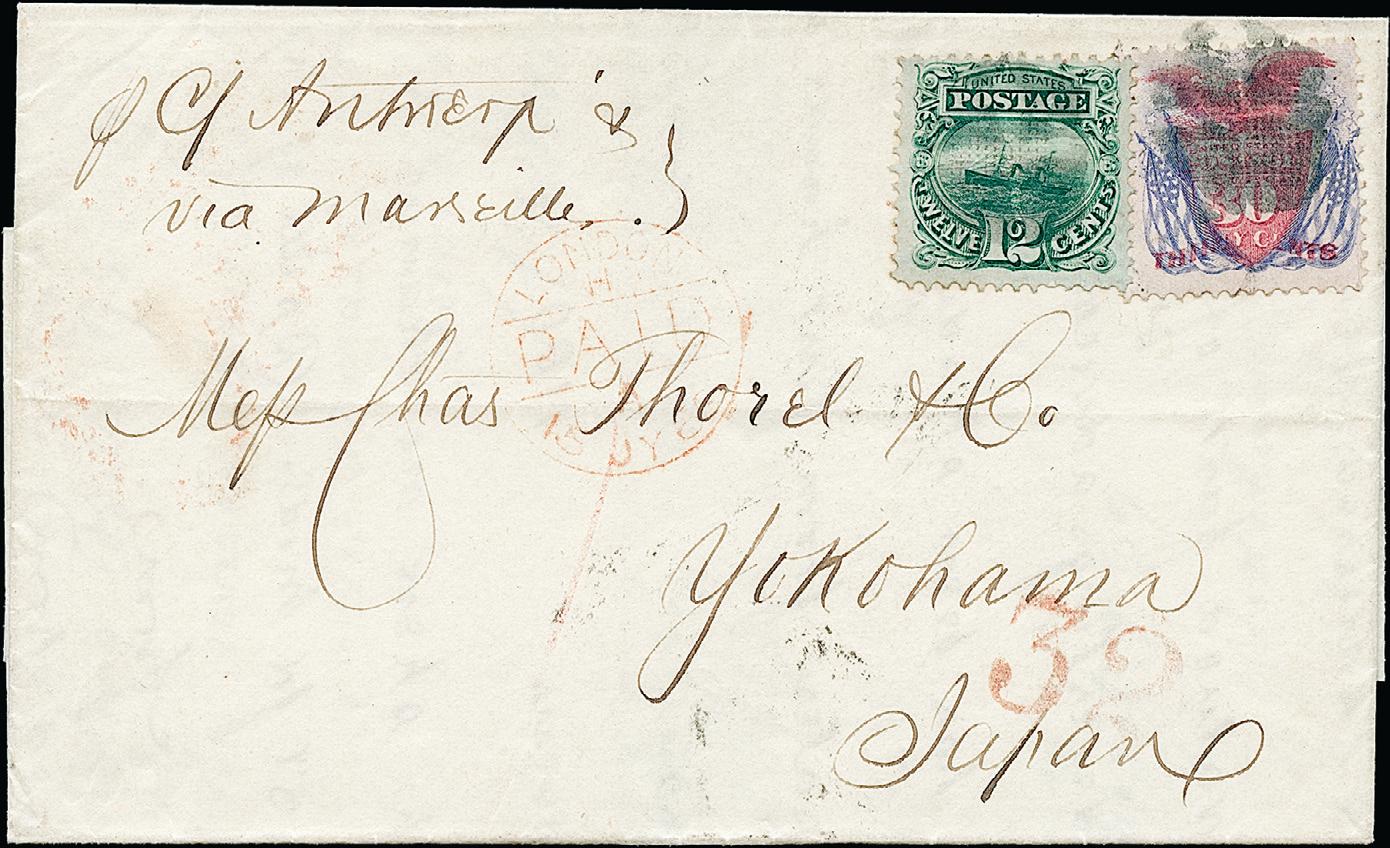 p C/ Antwerp &
via Marseille.
UNITED STATES
POSTAGE
TWELVE 12 CENTS
UNITED STATES
30
LONDON
H
PAID
15 JY
Mess Chas Thorel & Co.
Yokohama
32
Japan